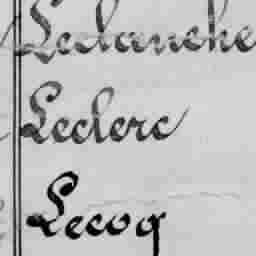 Leclanche
Leclerc
Lecoq